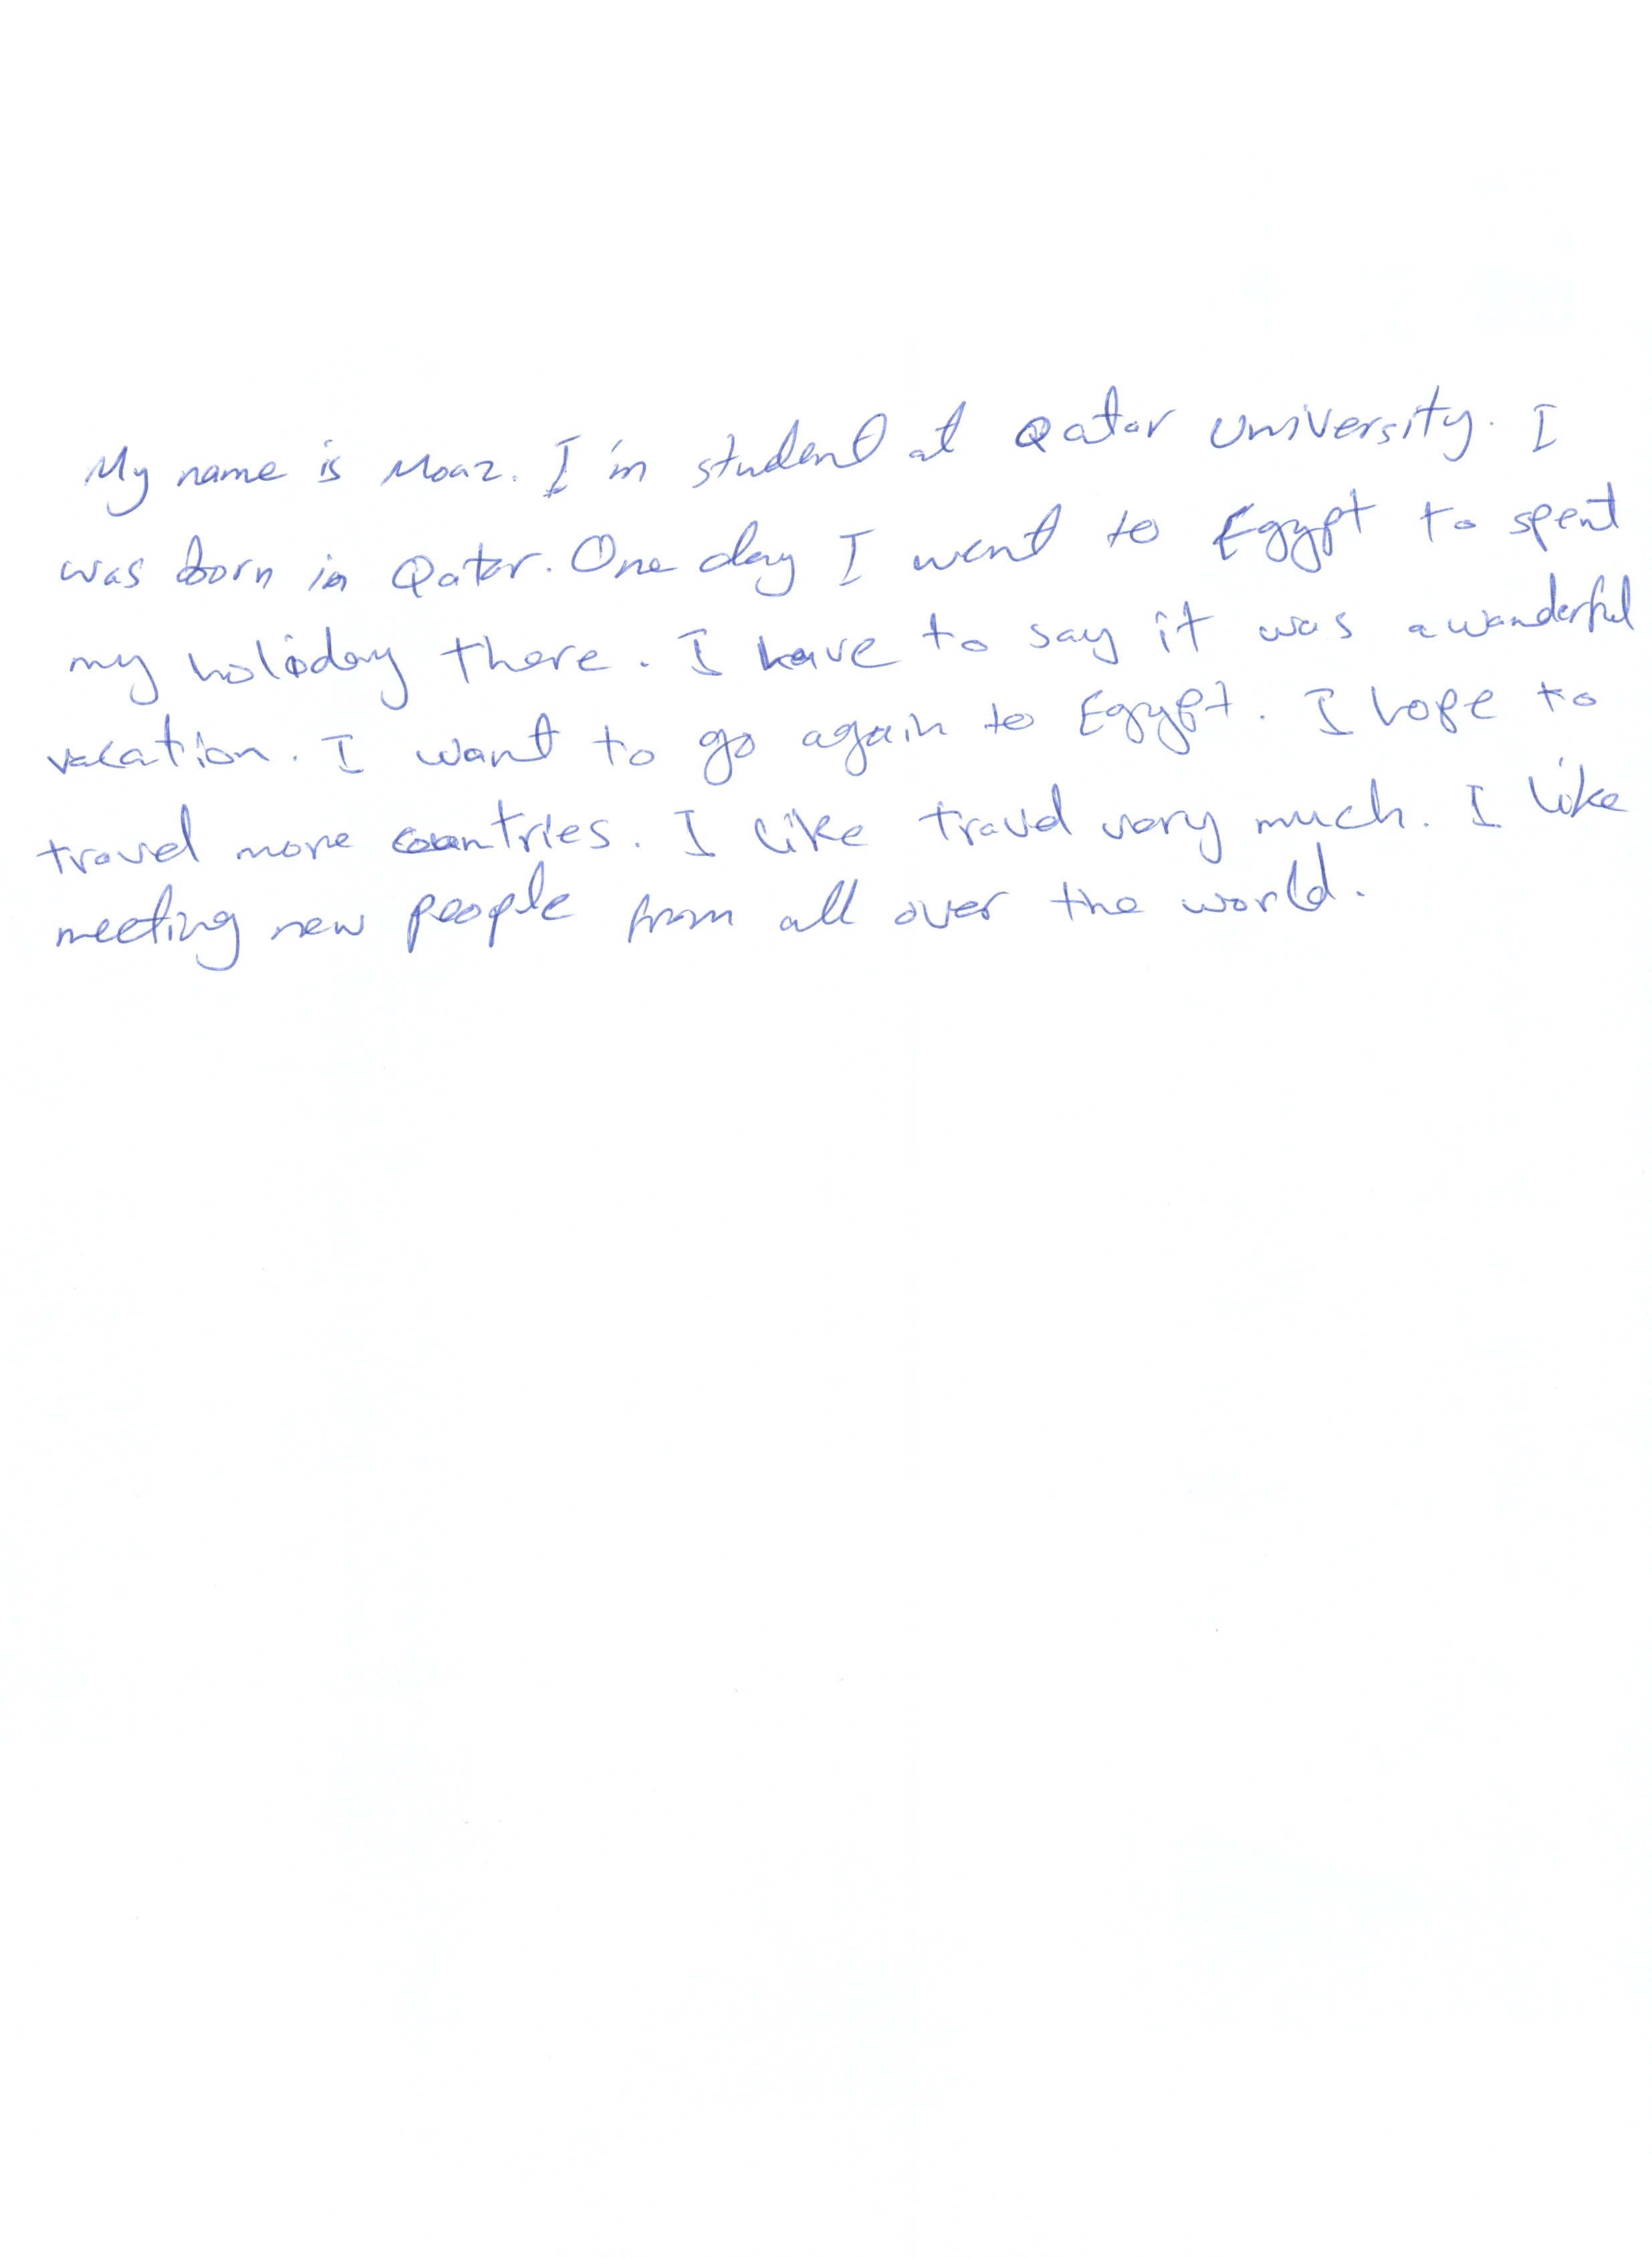 My name is Moaz. I'm student at Qatar University. I
was born in Qatar. One day I went to Egypt to spent
my holiday there. I have to say it was a wanderful
vacation. I want to go again to Egypt. I hope to
travel more countries. I like travel very much. I like
meeting new people from all over the world.